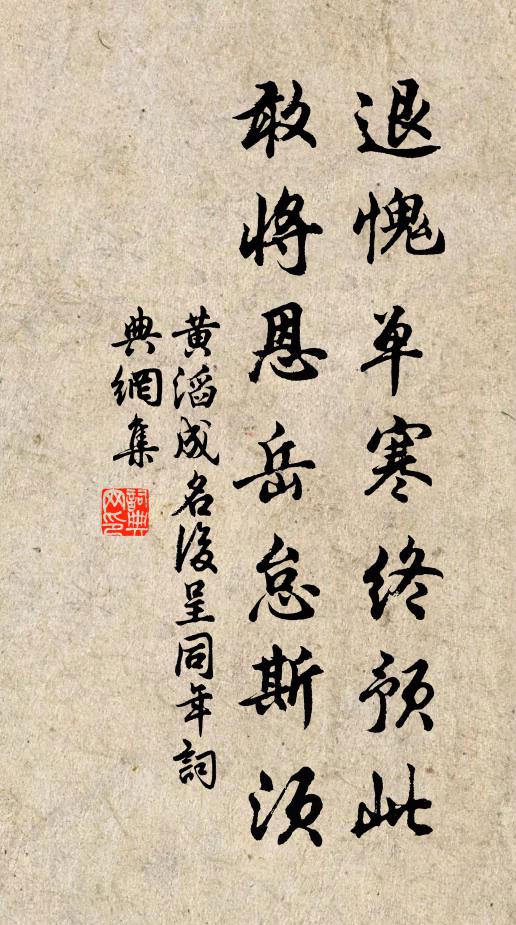 退愧单寒终预此
敢将恩岳怠斯须
黄滔成名後呈同年詞
典網集
詞典网印